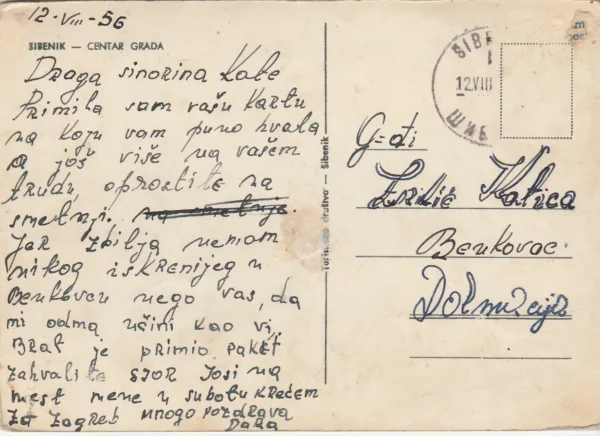 12-VIII-56
ŠIBENIK — CENTAR GRADA
Draga sinorina Kate
Primila sam vašu kartu
na koju vam puno hvala
a još više na vašem
trudu, oprostite na
smetnji. na smetnje.
Jer zbilja nemam
nikog iskrenijeg u
Benkovcu nego vas, da
mi odma učini kao vi.
Brat je primio paket
zahvalite SJOR Josi na
mest mene u subotu krećem
za Zagreb mnogo pozdrava
Dara
Turističko društvo — Šibenik
ŠIBE
12 VIII
ШИБ
G-đi
Zrilić Katica
Benkovac.
Dalmacija